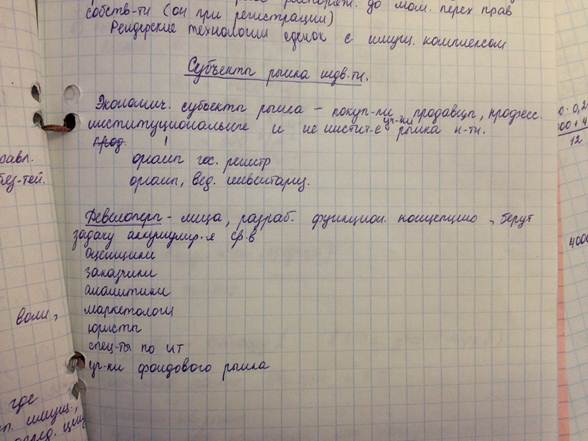 собств-ти (он при регистрации) до мом. перех прав
Рейдерские технологии сделок с имущ. комплексом
Субъекты рынка недв-ти.
Экономич. субъекты рынка – покуп-ли, продавцы, професс.
институциональные и не инстит-е уч-ки рынка н-ти.
прод.
органы гос. регистр
органы, вед. инвентариз.
Девелоперы - лица, разраб. функцион. концепцию, берут
задачу аккумулир-я ср-в
оценщики
заказчики
аналитики
маркетологи
юристы
спец-ты по ИТ
уч-ки фондового рынка
воли,
где
12